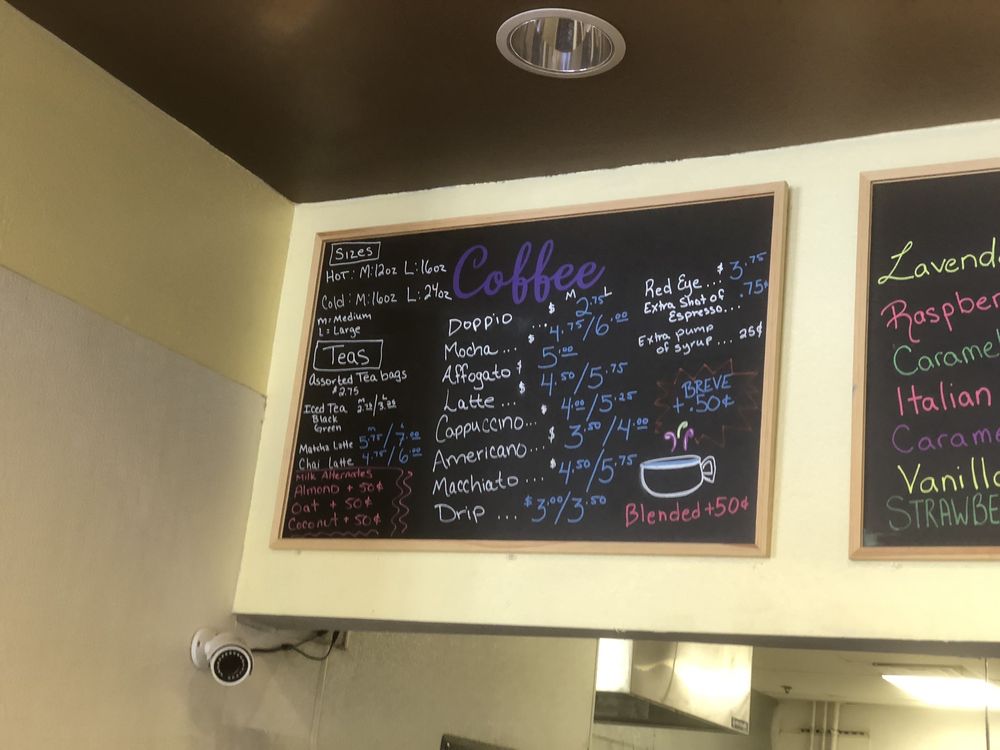 Sizes
HOT: M:12oz L:16oz
Cold: M:16oz L:24oz
M=Medium
L=Large
TEAS
Assorted Tea bags
$2.75
Iced Tea
Black
Green
M L
Matcha Latte 5.75/7.00
Chai Latte 4.75/6.00
Milk Alternates
Almond + 50¢
Oat + 50¢
Coconut + 50¢
Coffee
M L
Doppio ... $ 2.75
Mocha ... $ 4.75/6.00
Affogato $ 5.00
Latte ... $ 4.50/5.75
Cappuccino... $ 4.00/5.25
Americano... $ 3.50/4.00
Macchiato ... $ 4.50/5.75
Drip ... $3.00/3.50
Red Eye... $3.75
Extra Shot of
Espresso... .75¢
Extra pump
of syrup ... 25¢
BREVE
+ .50¢
Blended +50¢
Lavend
Raspber
Caramel
Italian
Carame
Vanilla
STRAWBE